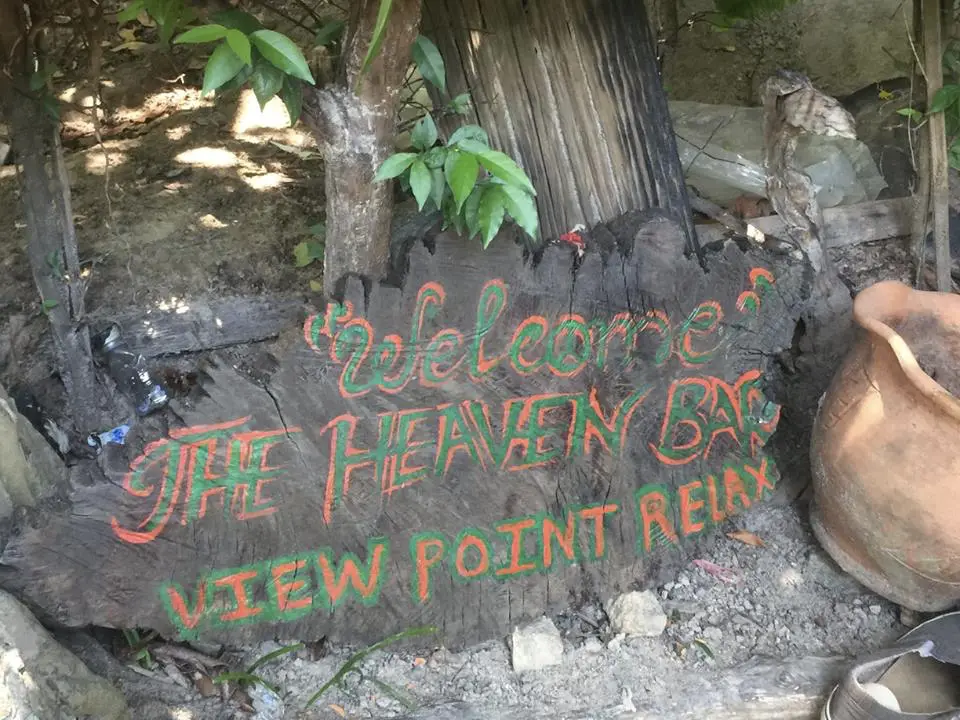 "Welcome"
THE HEAVEN BAR
VIEW POINT RELAX